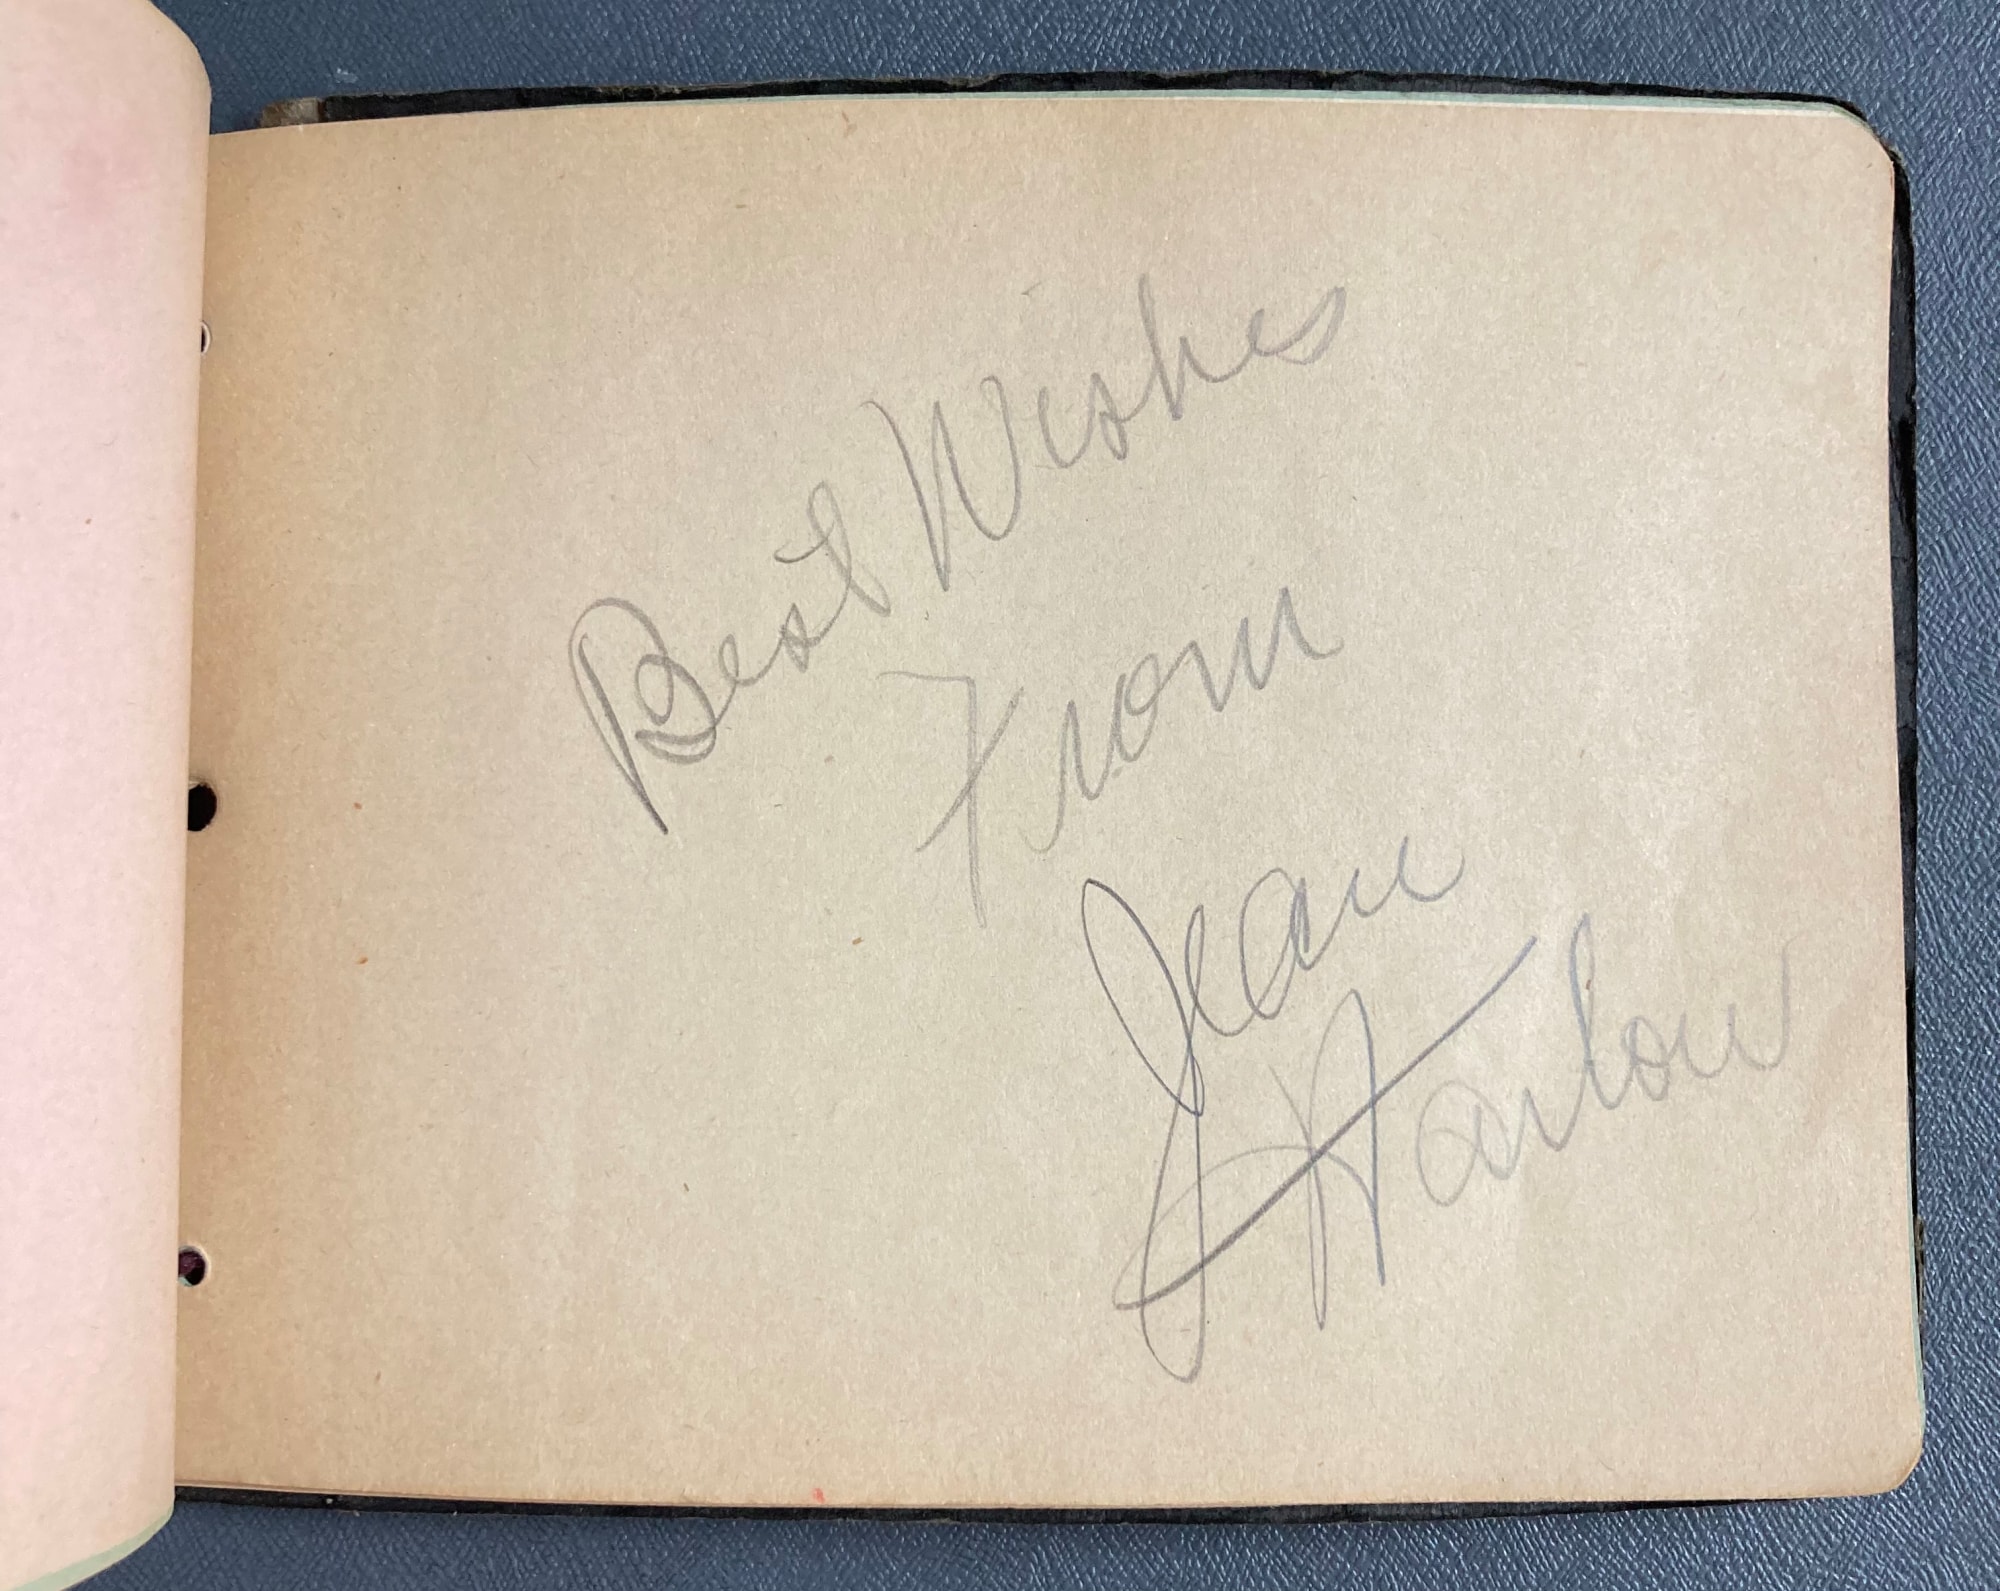 Best Wishes
From
Jean
Harlow